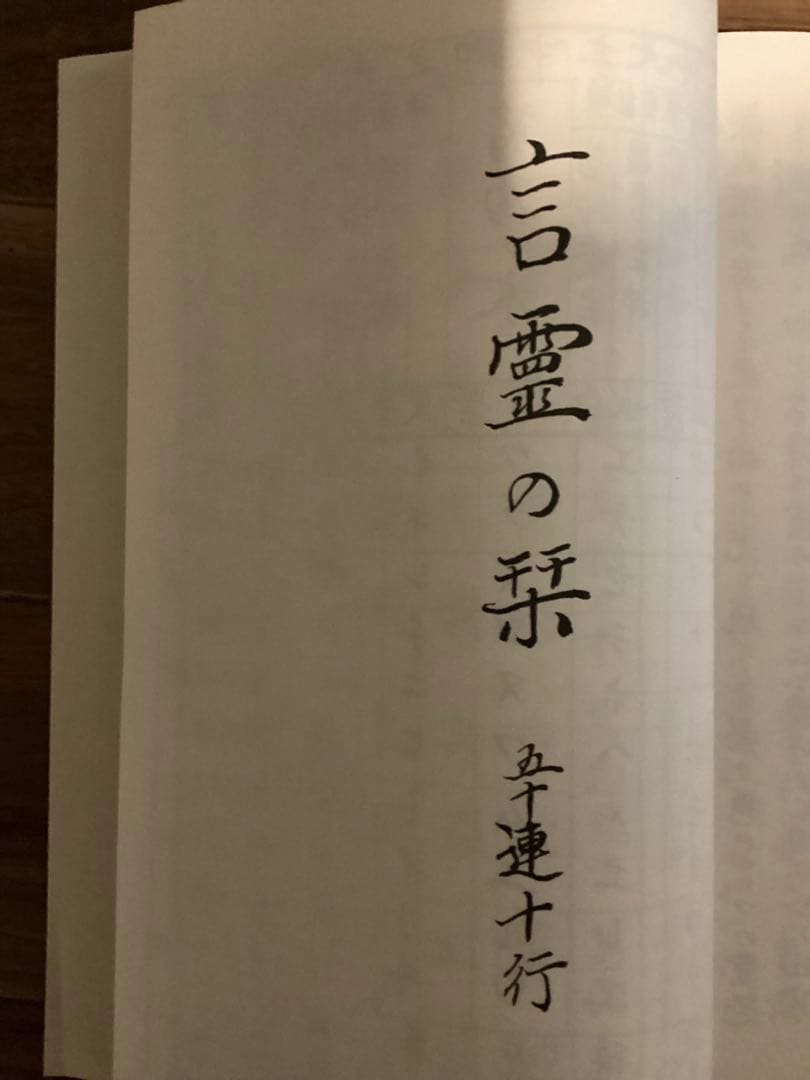 言霊の栞 五十連十行